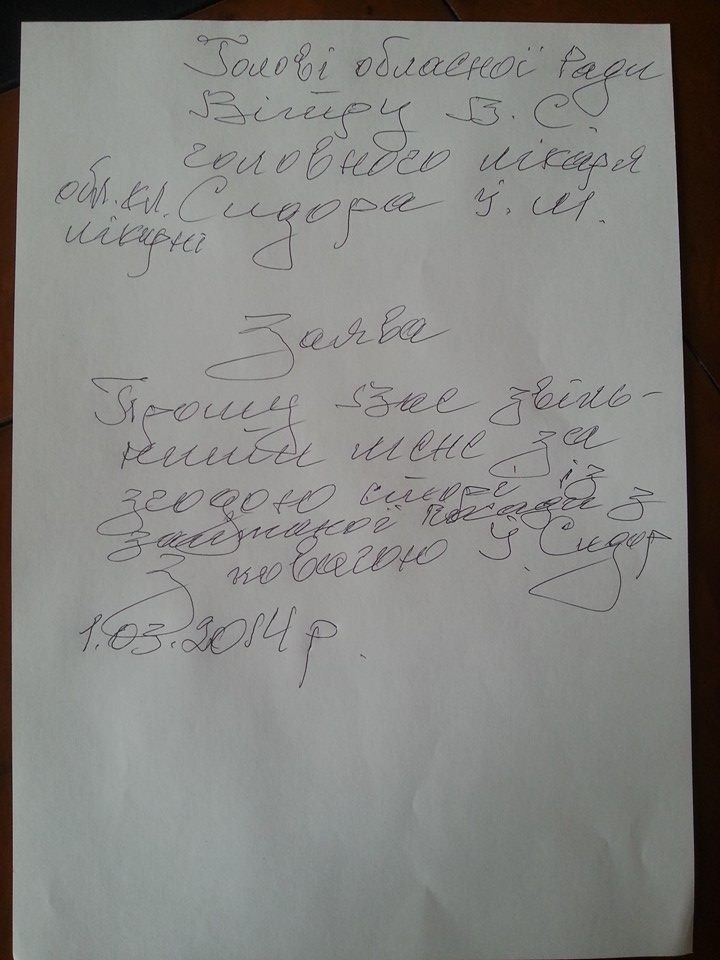 Голові обласної Ради
Війтру В. С.
головного лікаря
обл. кл. Сидора Й. М.
лікарні
Заява
Прошу Вас звіль-
нити мене за
згодою сторін із
займаної посади з
З повагою Й. Сидор
1.03.2014 р.